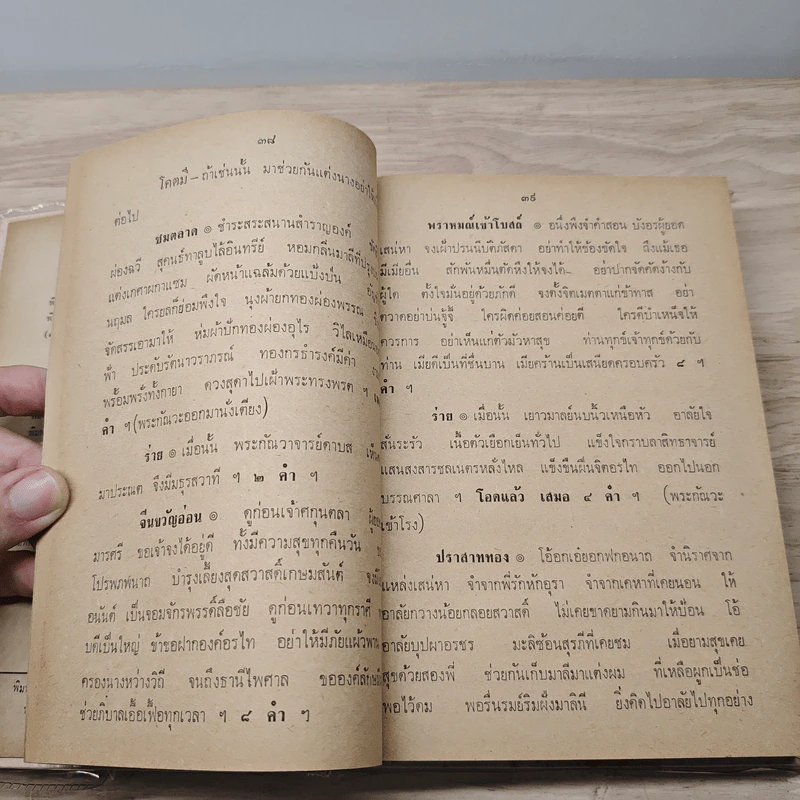 ๓๘
โคตมี — ถ้าเช่นนั้น มาช่วยกันแต่งนางอย่าให้
ต่อไป
ชมตลาด ๑ ชำระสระสนานสำราญองค์
ผ่องฉวี สุคนธ์ทาลูบไล้อินทรีย์ หอมกลิ่นมาลีที่
แต่งเกศาผกาแซม ผัดหน้าแฉล้มด้วยแป้งปั่น
นฤมล ใครยลก็ย่อมพึงใจ นุ่งผ้ายกทองผ่องพรรณ
จัดสรรเอามาให้ ห่มผ้าปักทองผ่องอุไร วิไลเหมือน
ฟ้า ประดับรัตนาวราภรณ์ ทองกรธำรงค์มีค่า
พร้อมพรั่งทั้งกายา ดวงสุดาไปเฝ้าพระทรงพรต ฯ
คำ ฯ (พระกัณวะออกมานั่งเตียง)
ร่าย ๑ เมื่อนั้น พระกัณวาจารย์ดาบส เห็น
มาประณต จึงมีมธุรสวาที ฯ ๒ คำ ฯ
จีนขวัญอ่อน ๑ ดูก่อนเจ้าศกุนตลา
มารศรี ขอเจ้าจงได้อยู่ดี ทั้งมีความสุขทุกคืนวัน
โปรพภพ์นาถ บำรุงเลี้ยงสุดสวาสดิ์เกษมสันต์
อนันต์ เป็นจอมจักรพรรดิ์ลือชัย ดูก่อนเทวาทุกราศี
บดีเป็นใหญ่ ข้าขอฝากองค์อรไท อย่าให้มีภัยแผ้วพาน
ครองนางหว่างวิถี จนถึงธานีไพศาล ขอองค์ลักษมี
ช่วยภิบาลเอื้อเฟื้อทุกเวลา ฯ ๘ คำ ฯ
๓๙
พราหมณ์เข้าโบสถ์ ๑ อนึ่งพึงจำคำสอน บังอรผู้ยอด
เสน่หา จงเฝ้าปรนนิบัติภัสดา อย่าทำให้ข้องขัดใจ ถึงแม้เธอ
มีเมียอื่น สักพันหมื่นตัดหึงให้จงได้ อย่าปากจัดคัดง้างกับ
ผู้ใด ตั้งใจมั่นอยู่ด้วยภักดี จงตั้งจิตเมตตาแก่ข้าทาส อย่า
ตวาดอย่าบ่นจู้จี้ ใครผิดค่อยสอนค่อยตี ใครดีบำเหน็จให้
ควรการ อย่าเห็นแก่ตัวมัวหาสุข ท่านทุกข์เจ้าทุกข์ด้วยกับ
ท่าน เมียดีเป็นที่ชื่นบาน เมียคร้านเป็นเสนียดครอบครัว ๘ ฯ
คำ ฯ
ร่าย ๑ เมื่อนั้น เยาวมาลย์นบนิ้วเหนือหัว อาลัยใจ
สั่นระรัว เนื้อตัวเยือกเย็นทั่วไป แข็งใจกราบลาสิทธาจารย์
แสนสงสารชลเนตรหลั่งไหล แข็งขืนฝืนจิตอรไท ออกไปนอก
บรรณศาลา ฯ โอดแล้ว เสมอ ๔ คำ ฯ (พระกัณวะ
เข้าโรง)
ปราสาททอง ๑ โอ้อกเอ๋ยอกฟกอนาถ จำนิราศจาก
แหล่งเสน่หา จำจากพี่รักหักอุรา จำจากเคหาที่เคยนอน ให้
อาลัยกวางน้อยกลอยสวาสดิ์ ไม่เคยขาดยามกินมาให้ป้อน โอ้
อาลัยบุปผาอรชร มะลิซ้อนสุรภีที่เคยชม เมื่อยามสุขเคย
สุขด้วยสองพี่ ช่วยกันเก็บมาลีมาแต่งผม ที่เหลือผูกเป็นช่อ
พอไว้ดม พอรื่นรมย์ริมฝั่งมาลินี ยิ่งคิดไปอาลัยไปทุกอย่าง